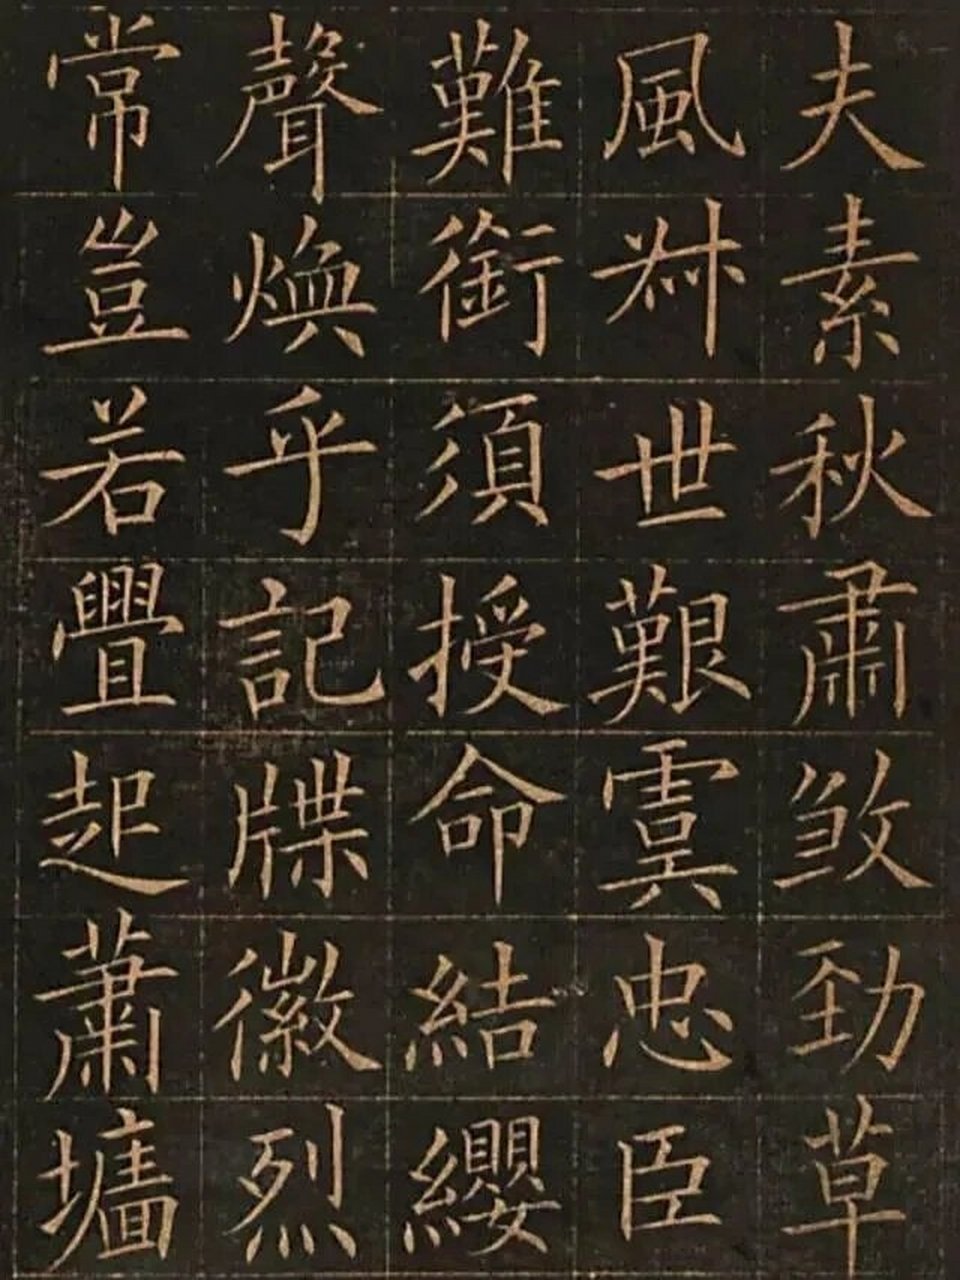 夫素秋肅煞勁草
風淋世艱虞忠臣
難銜須授命結纓
聲煥乎記牒徽烈
常豈若舋起蕭墻